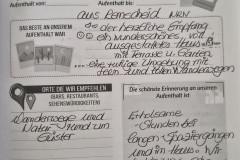 Aufenthalt von:
Aufenthalt bis:
aus Remscheid NRW
DAS BESTE AN UNSEREM AUFENTHALT WAR:
der herzliche Empfang
ein wunderschönes, voll
ausgestattetes Haus
mit Terrasse u. Garten
eine ruhige Umgebung mit
Wanderwegen
ORTE DIE WIR EMPFEHLEN
(BARS, RESTAURANTS, SEHENSWÜRDIGKEITEN)
Wanderwege und
Natur, Hund im
Die schönste Erinnerung an unseren
Aufenthalt ist:
Erholsame
Stunden bei
langen Spaziergängen
und im Haus.